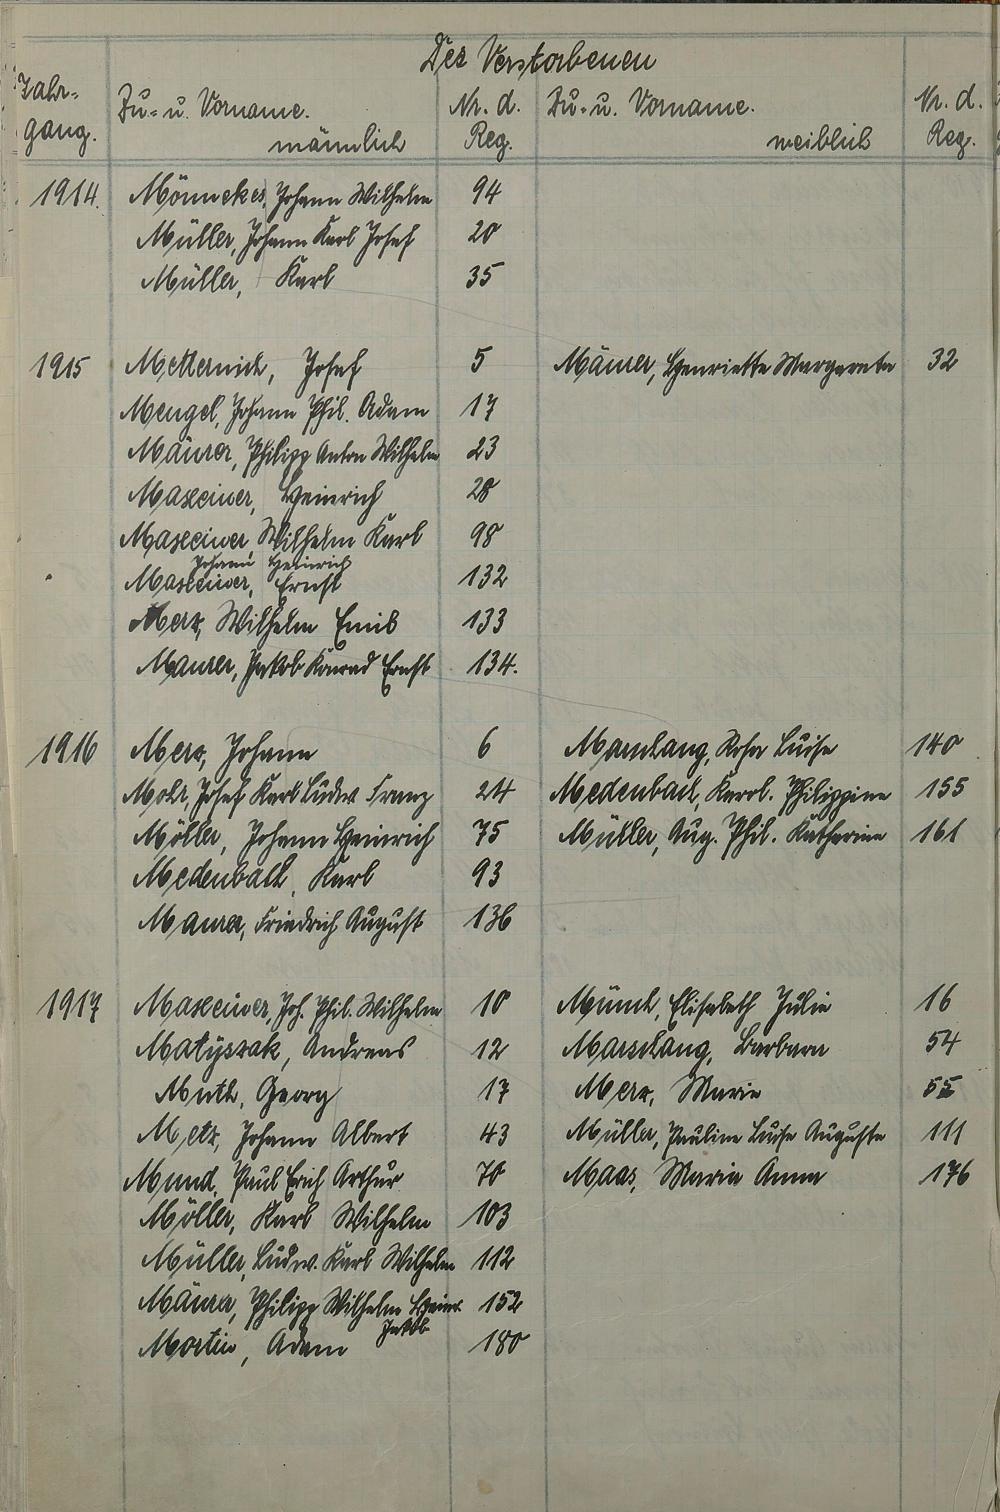 Des Verstorbenen
Jahr- Zu- u. Vorname. Nr. d. Zu- u. Vorname. Nr. d.
gang. männlich Reg. weiblich Reg.
1914. Mönnekes, Johann Wilhelm 94
Müller, Johann Karl Josef 20
Müller, Karl 35
1915 Metternich, Josef 5 Mäurer, Henriette Margareta 32
Mengel, Johann Phil. Adam 17
Mäurer, Philipp Anton Wilhelm 23
Maxeiner, Heinrich 28
Maxeiner, Wilhelm Karl 98
Johann Heinrich
Maxeiner, Ernst 132
Merz, Wilhelm Emil 133
Maurer, Jakob Konrad Ernst 134.
1916 Merz, Johann 6 Marschang, Rosa Luise 140
Mohr, Josef Karl Ludw. Franz 24 Medenbach, Karol. Philippine 155
Möller, Johann Heinrich 75 Müller, Aug. Phil. Katharine 161
Medenbach, Karl 93
Maurer, Friedrich August 136
1917 Maxeiner, Joh. Phil. Wilhelm 10 Münch, Elisabeth Julie 16
Matyszak, Andreas 12 Marschang, Barbara 54
Muth, Georg 17 Merz, Marie 55
Metz, Johann Albert 43 Müller, Pauline Luise Auguste 111
Mund, Paul Erich Arthur 70 Maas, Maria Anna 176
Möller, Karl Wilhelm 103
Müller, Ludw. Karl Wilhelm 112
Mäurer, Philipp Wilhelm Heinr. 152
Jakob
Martin, Adam 180